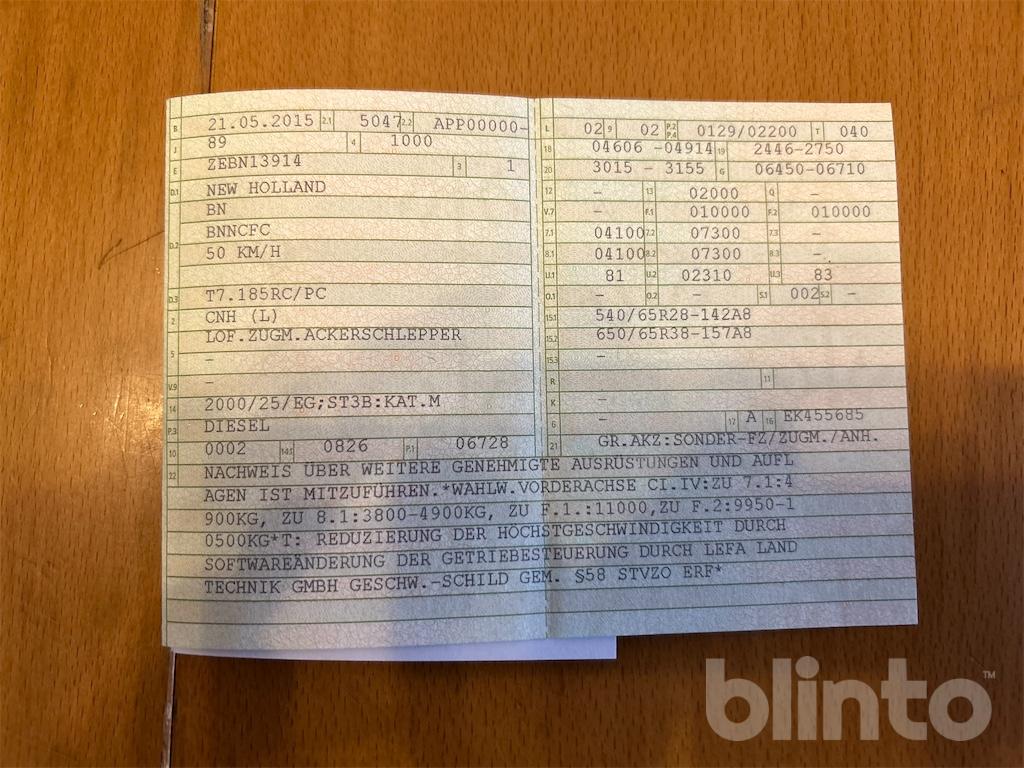 B 21.05.2015 2.1 5047 2.2 APP00000-
J 89 4 1000
E ZEBN13914 3 1
D.1 NEW HOLLAND
BN
D.2 BNNCFC
50 KM/H
D.3 T7.185RC/PC
2 CNH (L)
LOF.ZUGM.ACKERSCHLEPPER
5 –
V.9 –
14 2000/25/EG;ST3B:KAT.M
P.3 DIESEL
10 0002 14.1 0826 P.1 06728
L 02 9 02 P.2 P.4 0129/02200 T 040
18 04606 -04914 19 2446-2750
20 3015 - 3155 G 06450-06710
12 – 13 02000 Q –
V.7 – F.1 010000 F.2 010000
7.1 04100 7.2 07300 7.3 –
8.1 04100 8.2 07300 8.3 –
U.1 81 U.2 02310 U.3 83
O.1 – O.2 – S.1 002 S.2 –
15.1 540/65R28-142A8
15.2 650/65R38-157A8
15.3 –
R 11
K –
6 – 17 A 16 EK455685
21 GR.AKZ:SONDER-FZ/ZUGM./ANH.
22 NACHWEIS ÜBER WEITERE GENEHMIGTE AUSRÜSTUNGEN UND AUFL
AGEN IST MITZUFÜHREN.*WAHLW.VORDERACHSE CI.IV:ZU 7.1:4
900KG, ZU 8.1:3800-4900KG, ZU F.1.:11000,ZU F.2:9950-1
0500KG*T: REDUZIERUNG DER HÖCHSTGESCHWINDIGKEIT DURCH
SOFTWAREÄNDERUNG DER GETRIEBESTEUERUNG DURCH LEFA LAND
TECHNIK GMBH GESCHW.-SCHILD GEM. §58 STVZO ERF*
blinto™